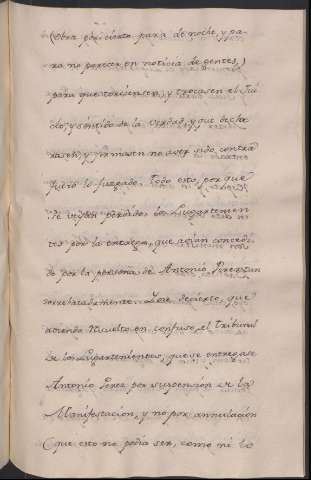 (Obra por cierto para de noche, y pa-
ra no parecer en noticia de gentes,)
para que torciessen, y trocasen el Jui
cio, y sentido de la verdad, y que decla
rasen, y firmasen no aver sido contra
fuero lo juzgado. Todo esto, por que
se vissen perdidos los Lugartenien
tes por la entrega, que avian concedi
do por la persona de Antonio Perez tan
arrebatadamente. Lo
aviendo resuelto en confuso, el Tribunal
de los Lugartenientes, que se entregase
Antonio Perez por suspension de la
Manifestacion, y no por annulacion
(que esto no podia ser, como ni lo